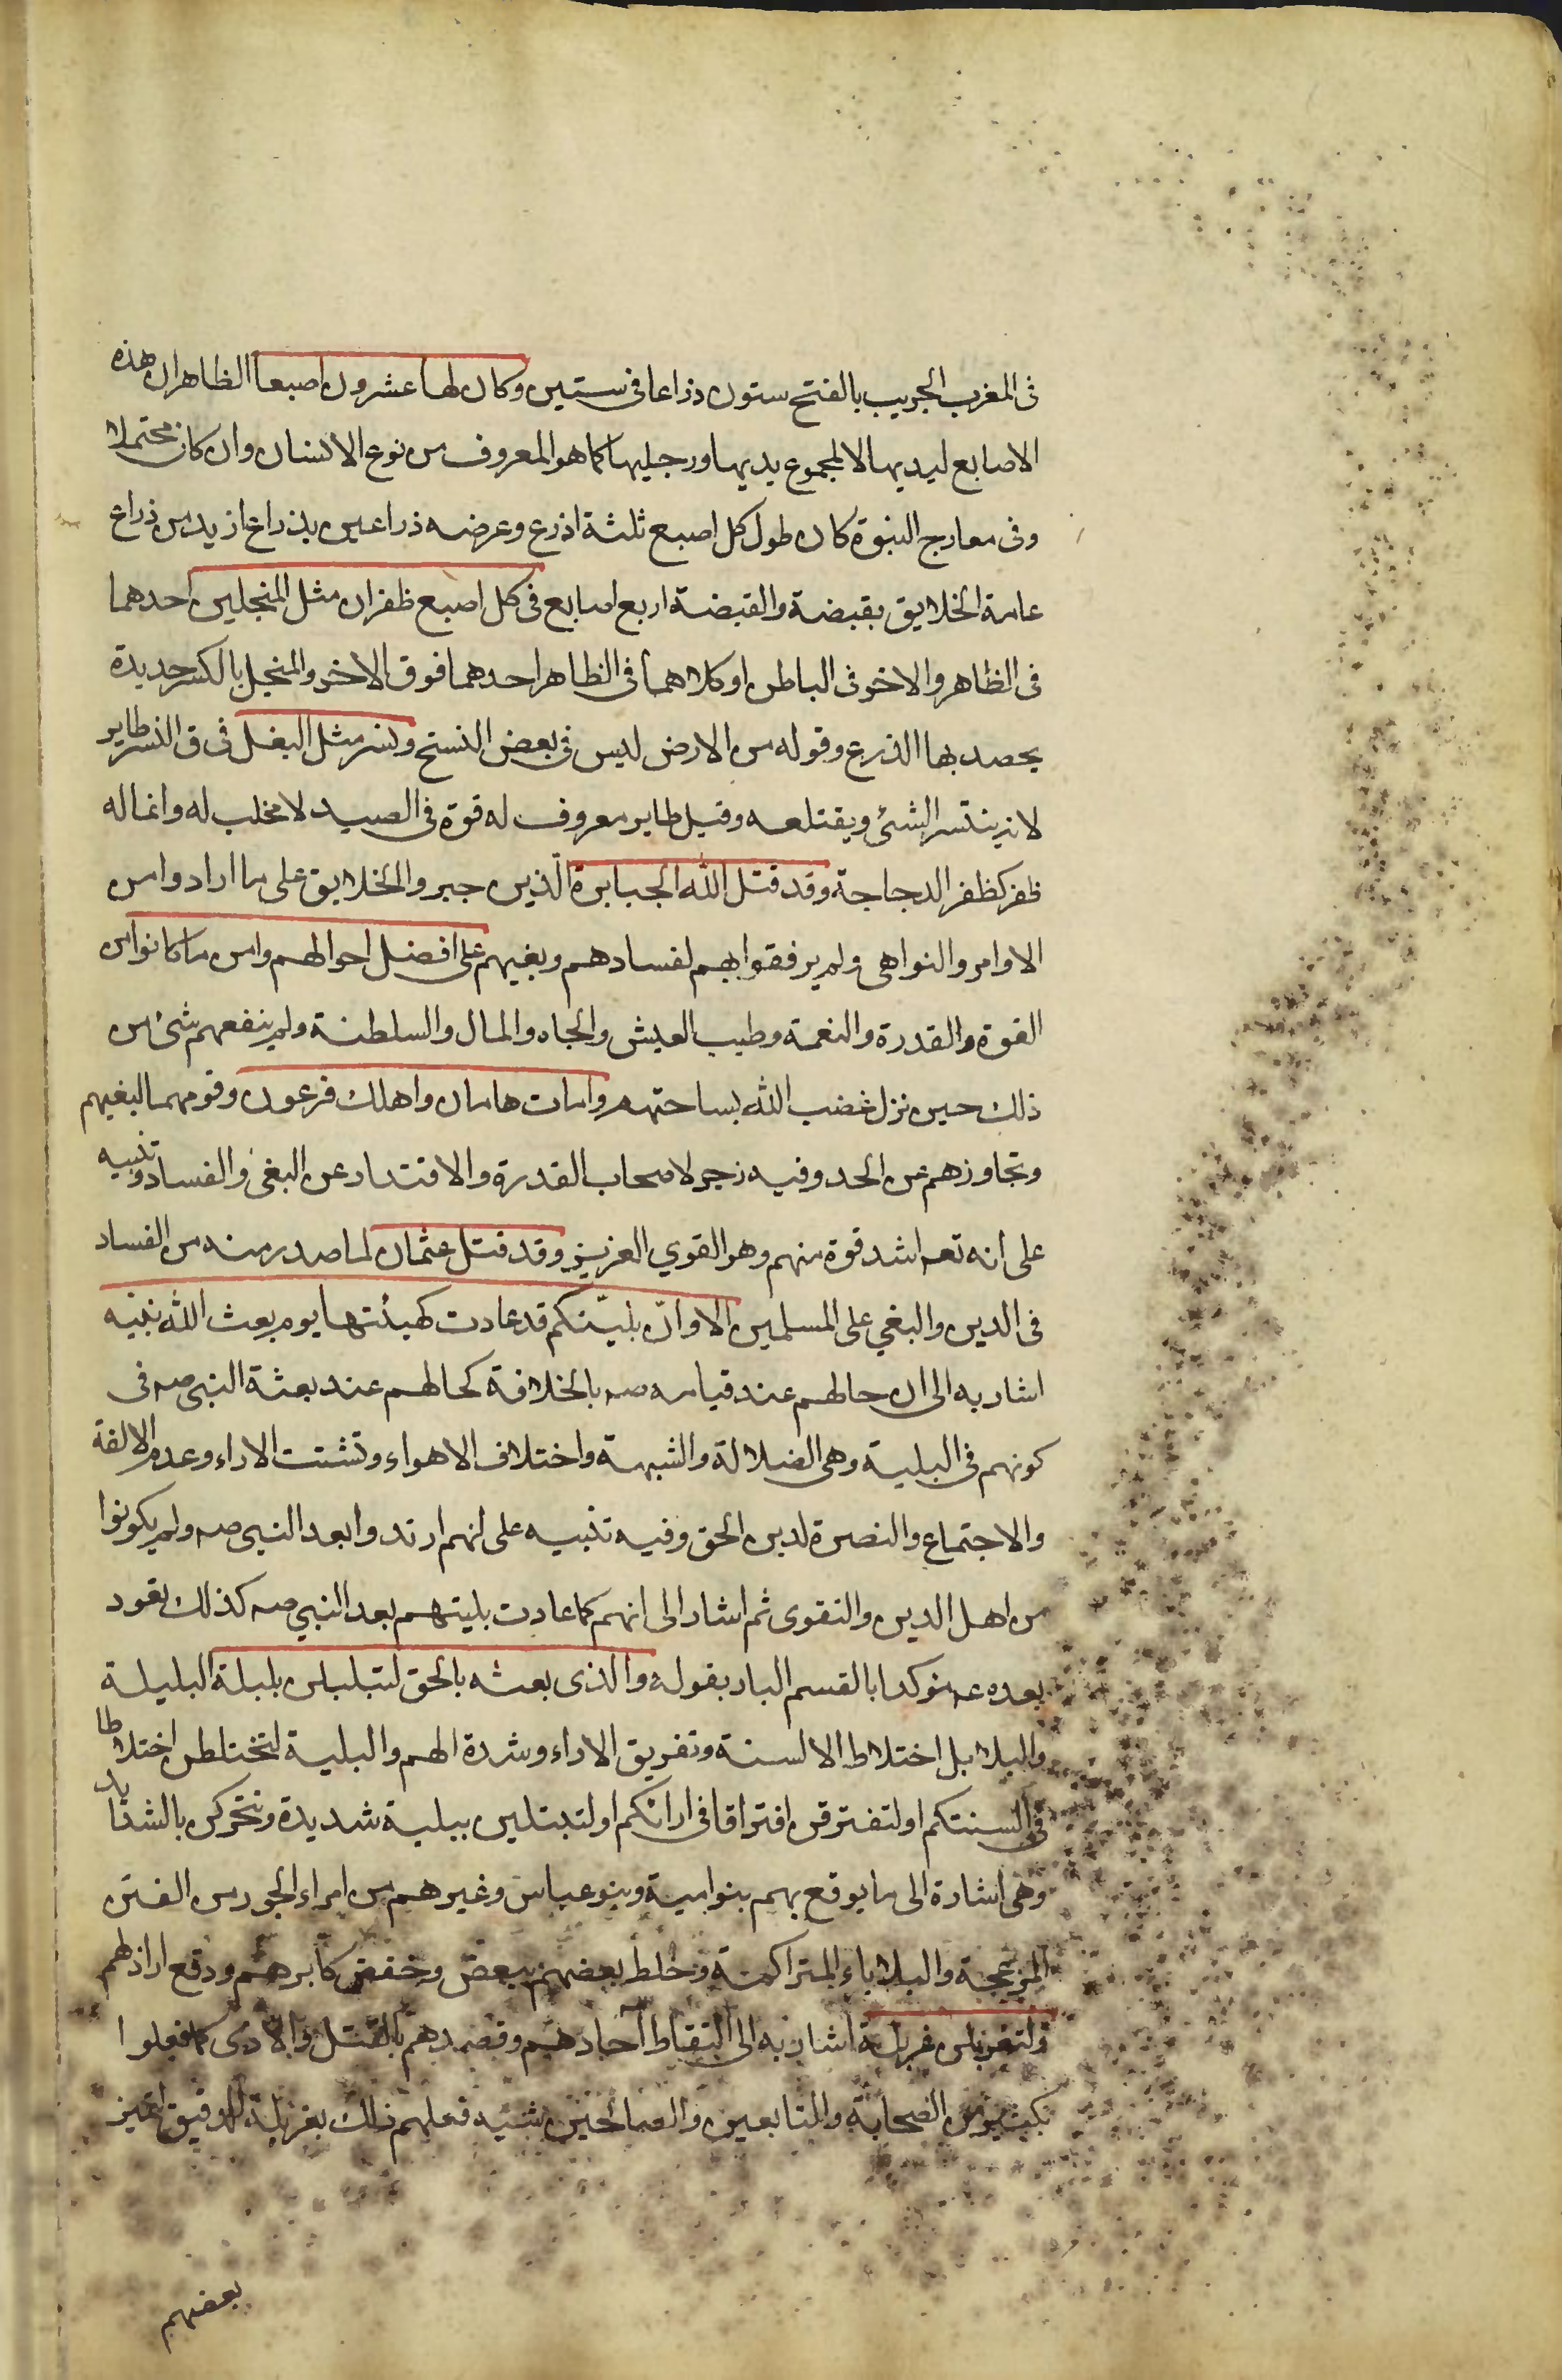 فى المغرب الجريب بالفتح ستون ذراعا فى ستين وكان لها عشرون اصبعا الظاهر ان هذه
الاصابع ليديها لا لمجموع يديها ورجليها كما هو المعروف من نوع الانسان وان كان محتملا
وفى معارج النبوة كان طول كل اصبع ثلثة اذرع وعرضه ذراعين بذراع ازيد من ذراع
عامة الخلايق بقبضة والقبضة اربع اصابع فى كل اصبع ظفران مثل المنجلين احدهما
فى الظاهر والاخر فى الباطن او كلاهما فى الظاهر احدهما فوق الاخر والمنجل بالكسر حديدة
يحصد بها الزرع وقوله من الارض ليس فى بعض النسخ ونسر مثل البغل فى ق النسر طاير
لانه ينتسر الشئ ويقتلعه وقيل طاير معروف له قوة فى الصيد لا مخلب له وانما له
ظفر كظفر الدجاجة وقد قتل الله الجبابرة الذين جبروا الخلايق على ما ارادوا من
الاوامر والنواهى ولم يرفقوا بهم لفسادهم وبغيهم على افضل احوالهم وامن ما كانوا من
القوة والقدرة والنعمة وطيب العيش والجاه والمال والسلطنة ولم ينفعهم شئ من
ذلك حين نزل غضب الله بساحتهم وامات هامان واهلك فرعون وقومهما لبغيهم
وتجاوزهم عن الحد وفيه زجر لاصحاب القدرة والاقتدار عن البغى والفساد وتنبيه
على انه تعه اشد قوة منهم وهو القوي العزيز وقد قتل عثمان لما صدر منه من الفساد
فى الدين والبغي على المسلمين الا وانّ بليّتكم قد عادت كهيئتها يوم بعث الله نبيّه
اشار به الى ان حالهم عند قيامه صه بالخلافة كحالهم عند بعثة النبى صه فى
كونهم فى البلية وهى الضلالة والشبهة واختلاف الاهواء وتشتت الاراء وعدم الالفة
والاجتماع والنصرة لدين الحق وفيه تنبيه على انهم ارتدوا بعد النبى صه ولم يكونوا
من اهل الدين والتقوى ثم اشار الى انهم كما عادت بليتهم بعد النبي صه كذلك تعود
بعده عه مؤكدا بالقسم البار بقوله والذى بعثه بالحق لتبلبلن بلبلة البلبلة
والبلابل اختلاط الالسنة وتفريق الاراء وشدة الهم والبلية لتختلطن اختلاطا
فى السنتكم او لتفترقن افتراقا فى ارائكم او لتبتلين ببلية شديدة وتتحركن بالشدايد
وهى اشارة الى ما يوقع بهم بنو امية وبنو عباس وغيرهم من امراء الجور من الفتن
المزعجة والبلاياء المتراكمة وخلط بعضهم ببعض وخفض اكابرهم ورفع اراذلهم
ولتغربلن غربلة اشار به الى التقاط آحادهم وقصدهم بالقتل والاذى كما فعلوا
بكثير من الصحابة والتابعين والصالحين شبه فعلهم ذلك بغربلة الدقيق لتميز
بعضهم